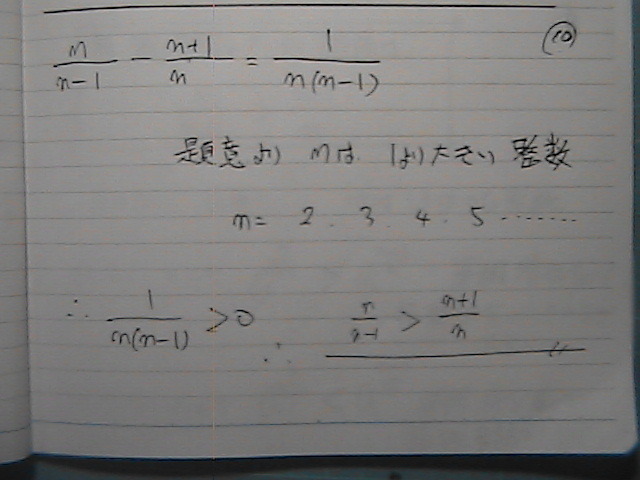 n/(n-1) - (n+1)/n = 1/(n(n-1)) ⑩
題意より nは 1より大きい 整数
n= 2 . 3 . 4 . 5 ········
∴ 1/(n(n-1)) >0 ∴ n/(n-1) > (n+1)/n 〃